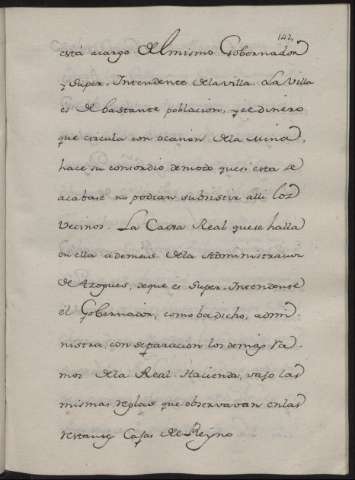 142,
está acargo del mismo Gobernador
y Super-Intendente dela villa. La Villa
es de bastante poblacion, y el dinero
que circula con ocasion dela mina,
hace su consordio demodo que si esta se
acabase no podrian subsistir alli los
Vecinos. La Caxa Real que se halla
en ella ademas dela Administracion
de Azogues, deque es Super-Intendente
el Gobernador, como ba dicho, admi-
nistra, con separacion los demas Ra-
mos dela Real Hacienda, vajo las
mismas reglas que observavan en las
restantes Cajas del Reyno